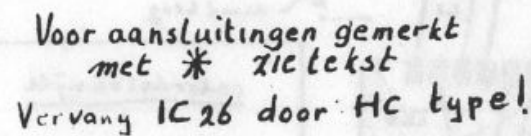 Voor aansluitingen gemerkt
met * zie tekst
Vervang IC 26 door HC type!